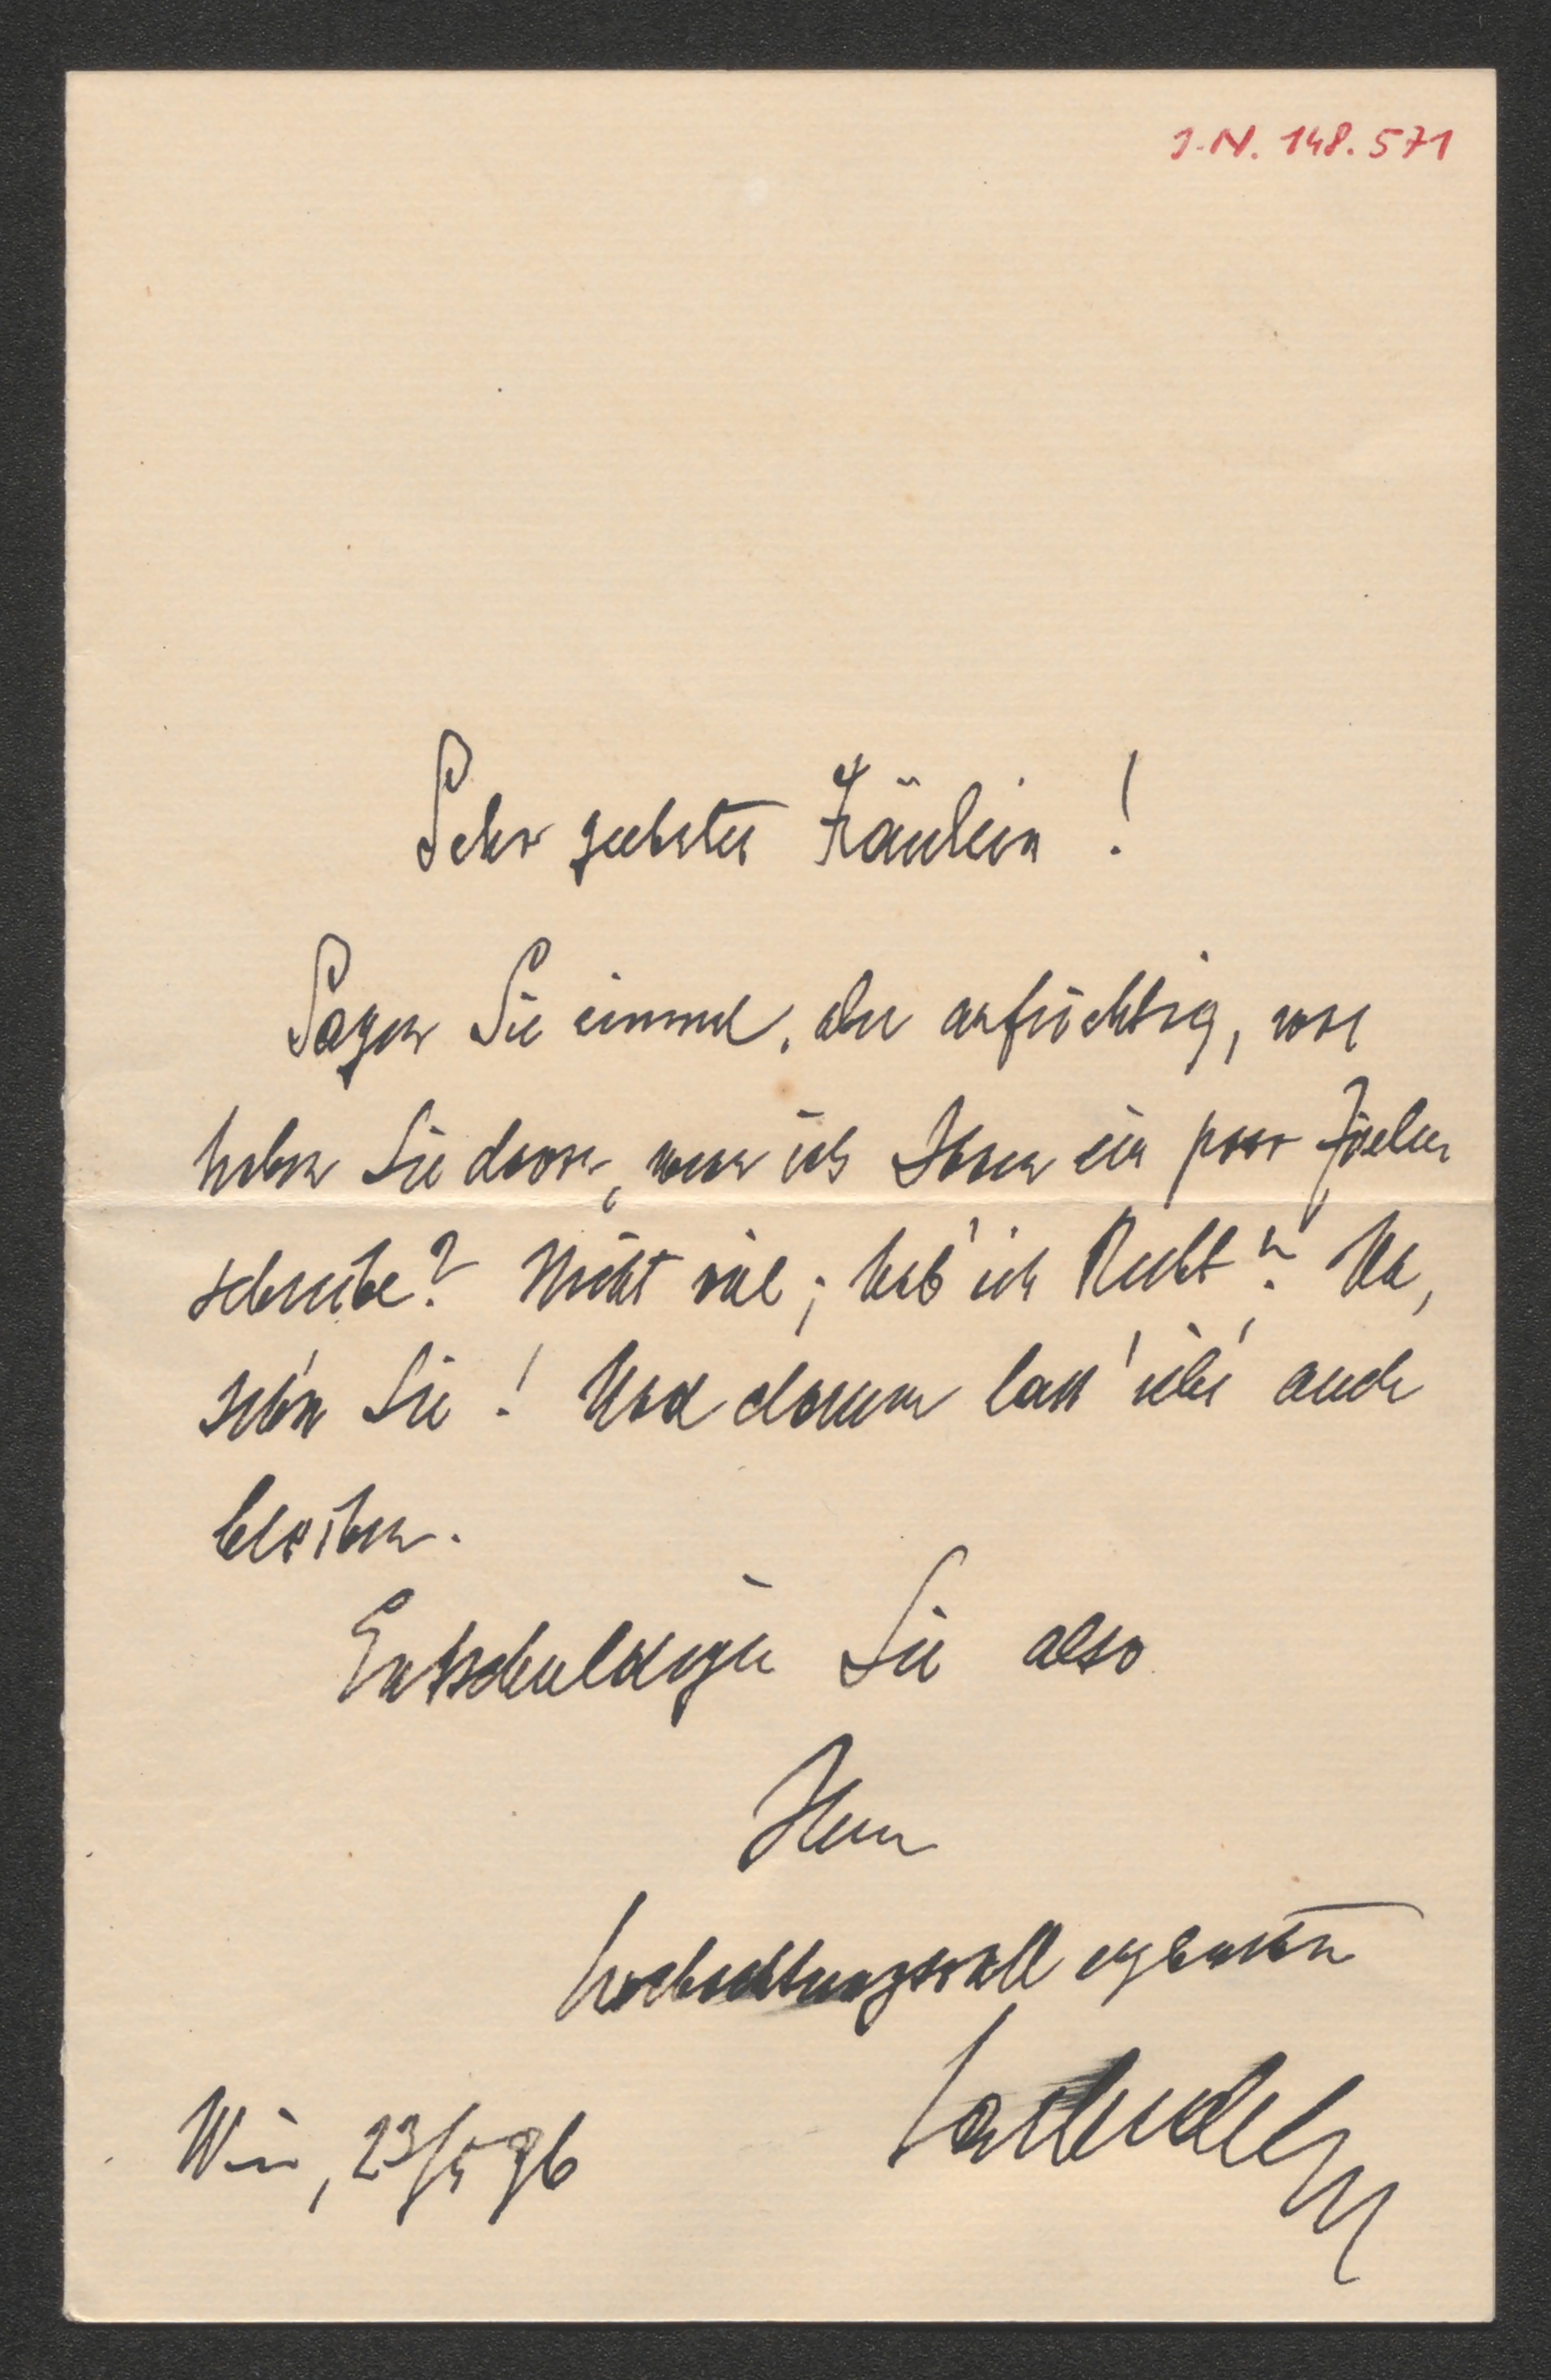 I.N. 148.571
Sehr geehrtes Fräulein!
Sagen Sie einmal, aber aufrichtig, was
haben Sie davon, wenn ich Ihnen ein paar Zeilen
schreibe? Nicht viel; hab' ich Recht? Na,
seh'n Sie! Und darum lass' ich's auch
bleiben.
Entschuldigen Sie also
Ihren
hochachtungsvoll ergebenen
Wien, 23/5 96